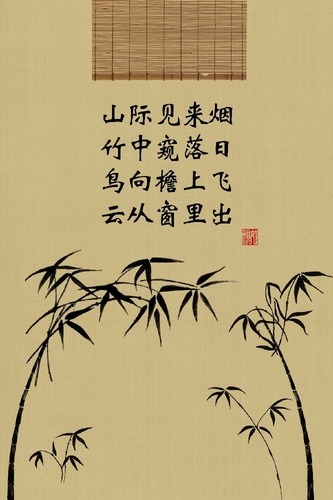 山际见来烟
竹中窥落日
鸟向檐上飞
云从窗里出